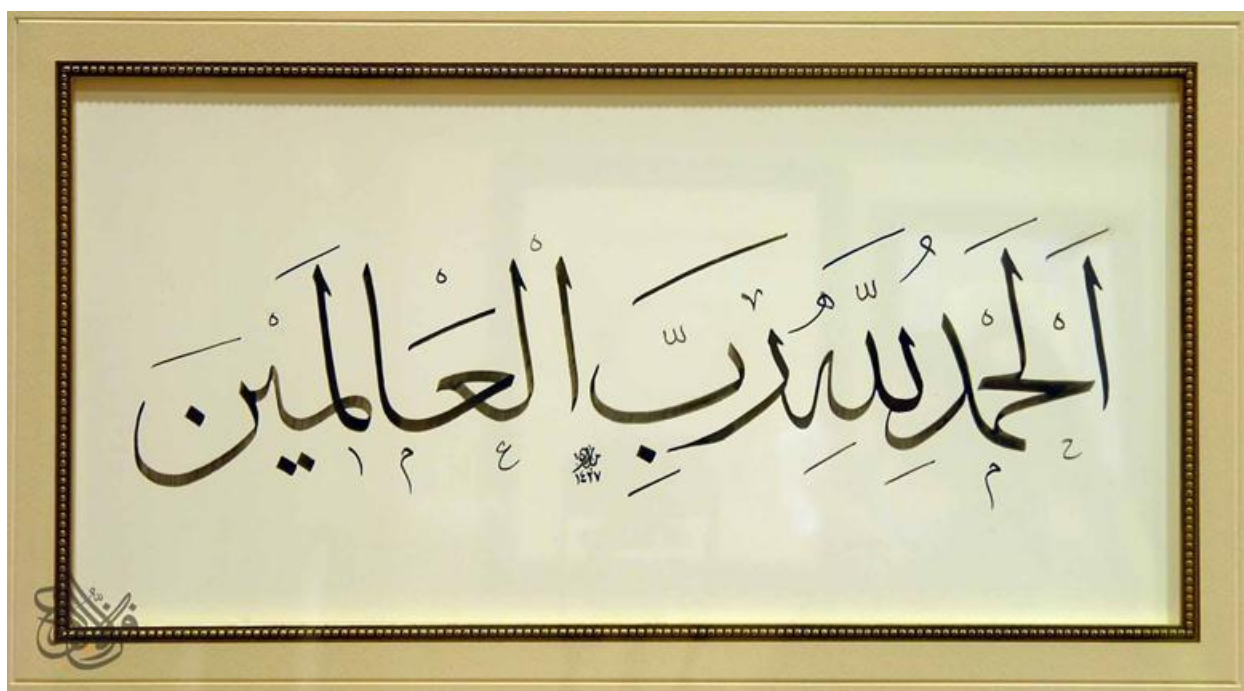 اَلْحَمْدُ لِلّٰهِ رَبِّ الْعَالَمَيْنَ
١٤٢٧